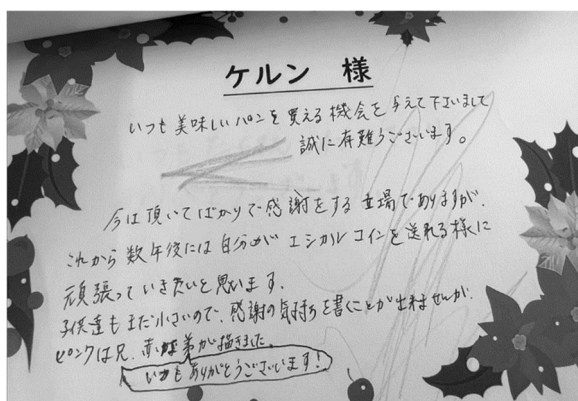 ケルン 様
いつも美味しいパンを買える機会を与えて下さいまして
誠に有難うございます。
今は頂いてばかりで感謝をする立場でありますが、
これから数年後には自分がエシカルコインを送れる様に
頑張っていきたいと思います。
子供達もまだ小さいので、感謝の気持ちを書くことが出来ませんが、
ピンクは兄、赤は弟が描きました。
いつもありがとうございます!